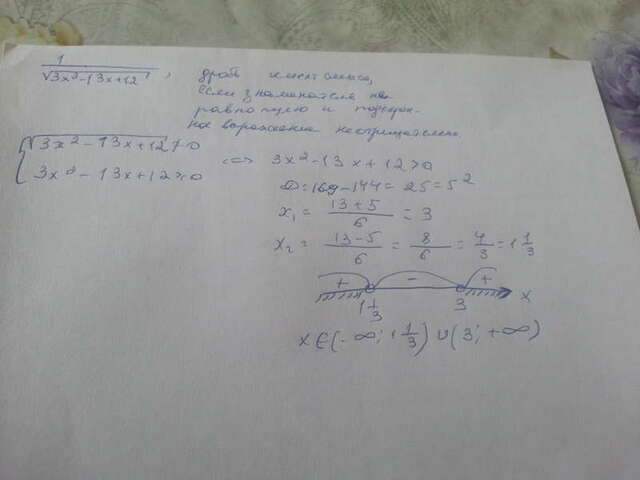 1/√(3x²-13x+12), дробь имеет смысл,
если знаменатель не
равно нулю и подкорен-
ное выражение неотрицательно
{ √(3x²-13x+12) ≠ 0
3x²-13x+12 ≥ 0 <=> 3x²-13x+12>0
D=169-144=25=5²
x₁ = (13+5)/6 = 3
x₂ = (13-5)/6 = 8/6 = 4/3 = 1 1/3
+ - +
1 1/3 3 x
x∈(-∞; 1 1/3) ∪ (3; +∞)